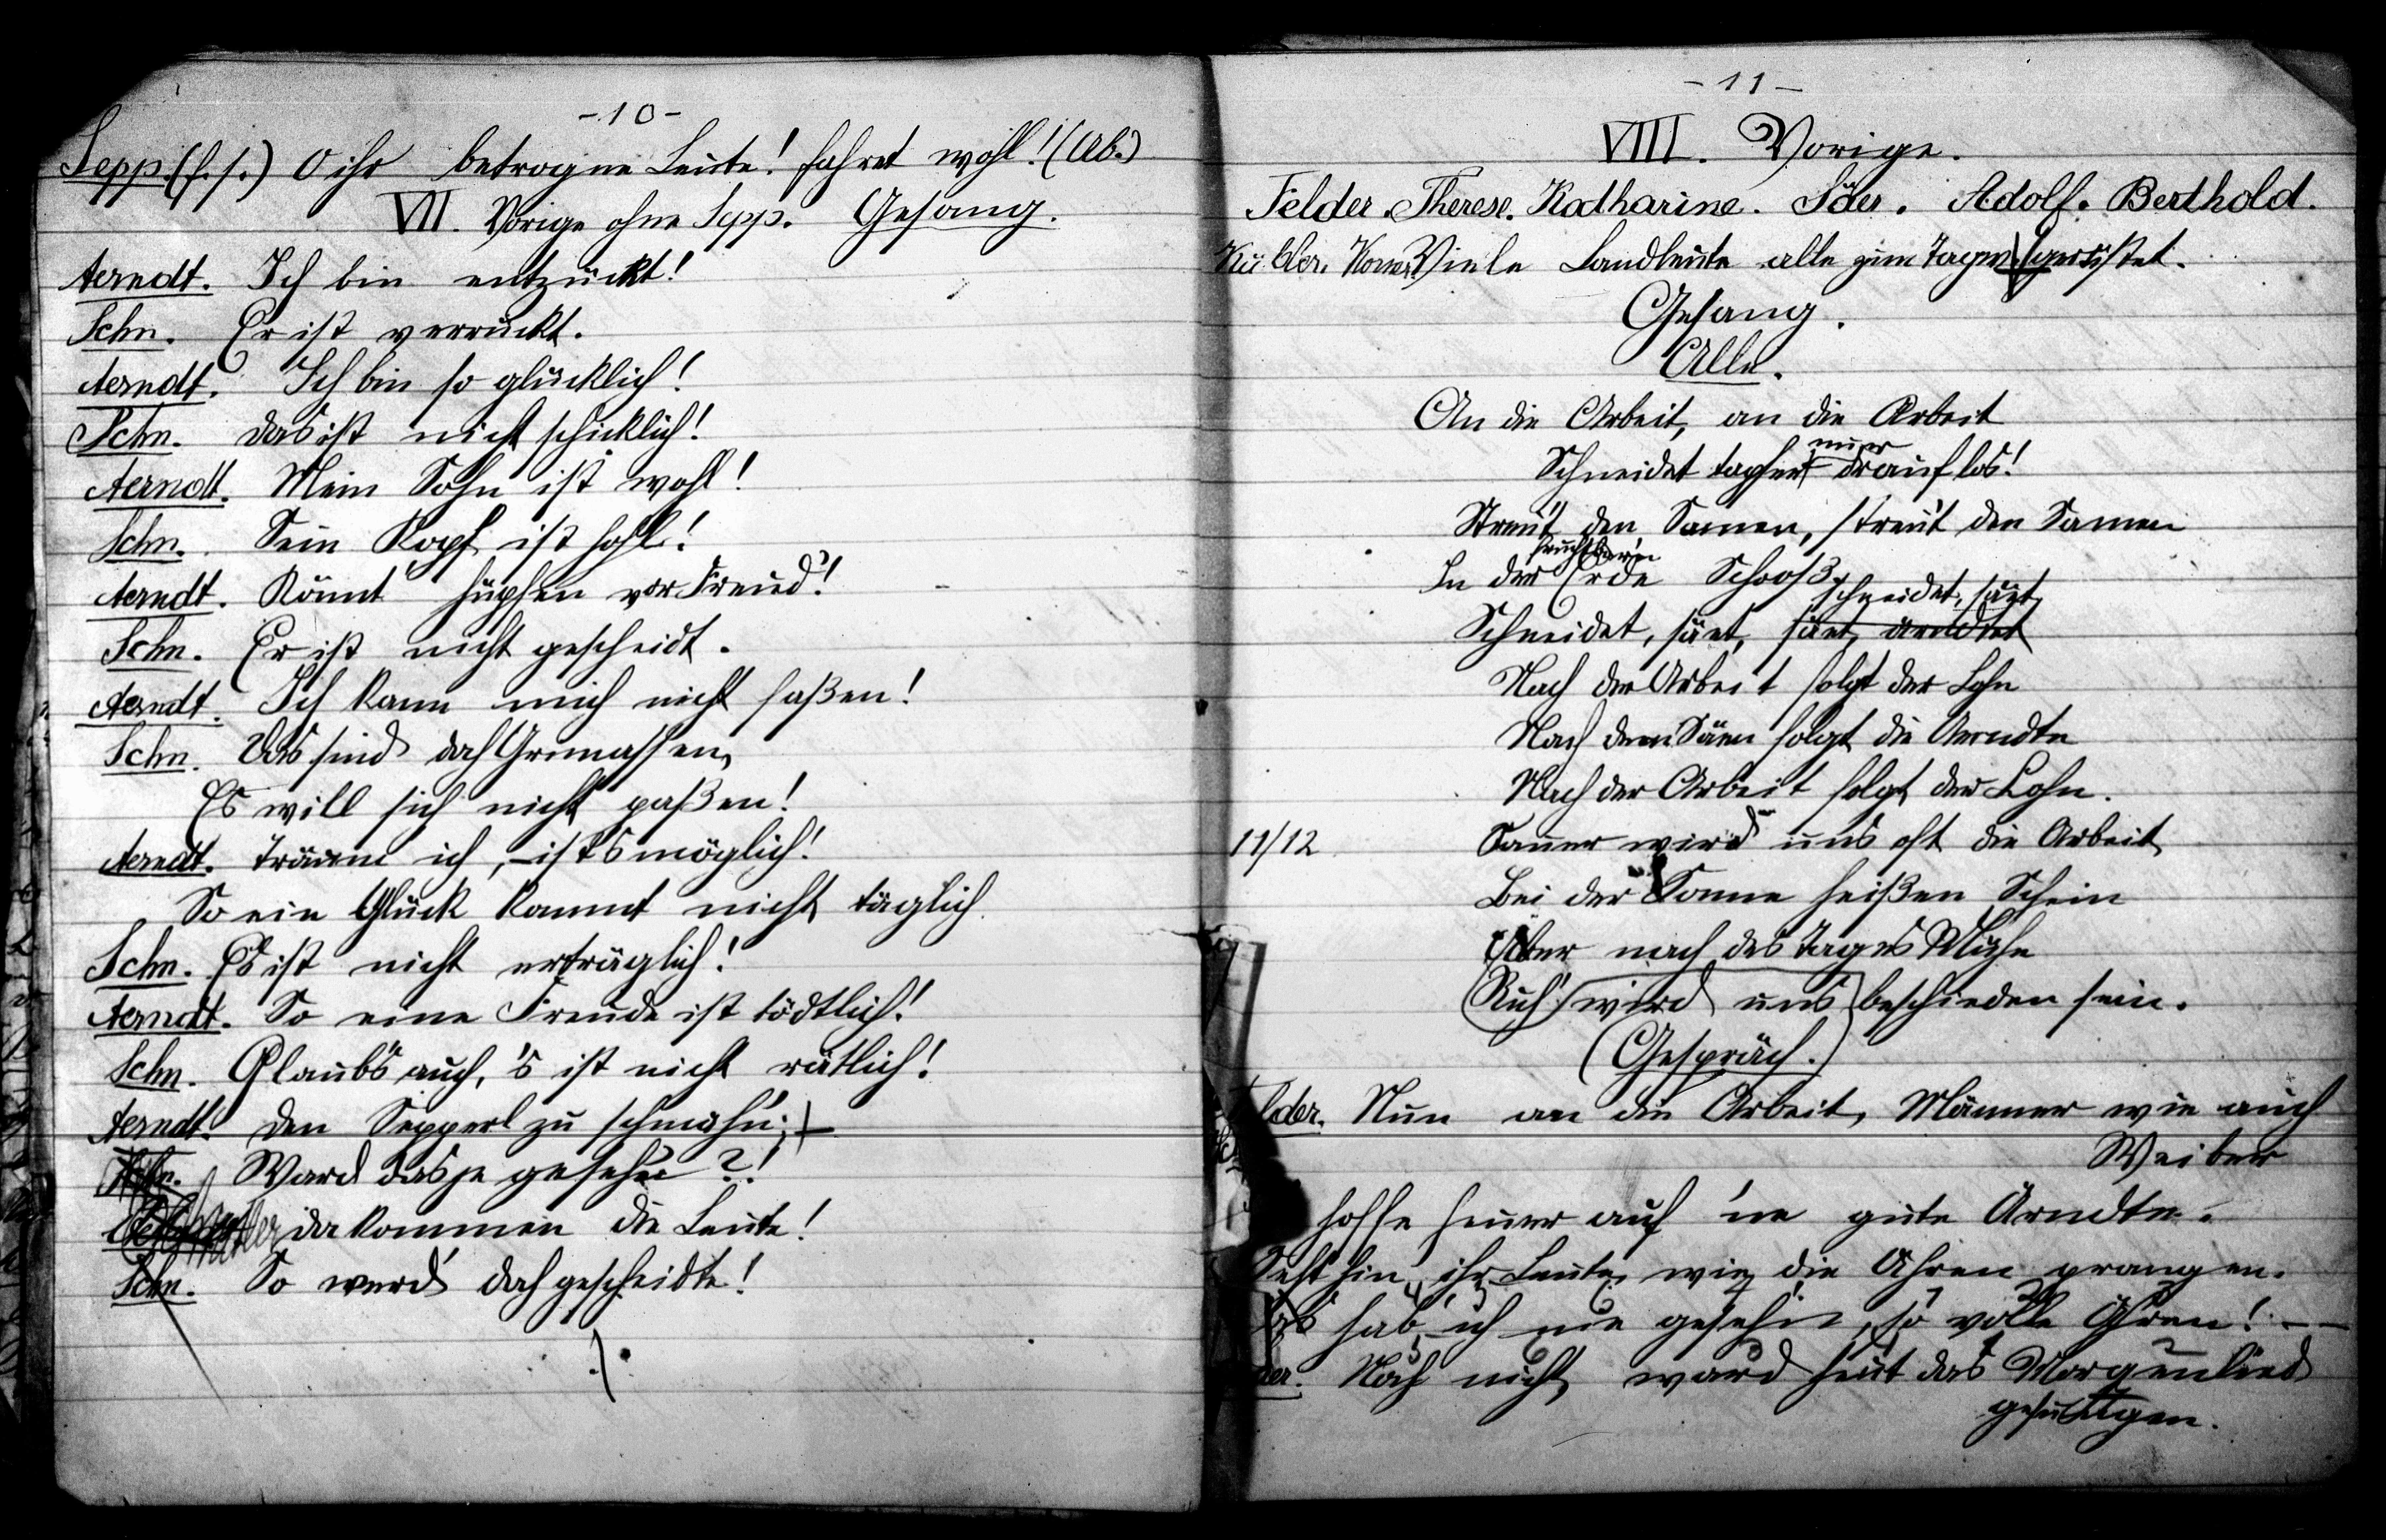 -10-
Sepp. (f. s.) O ihr betrogne Leute! fahret wohl! (Ab.)
VII. Vorige ohne Sepp. Gesang.
Aerndt. Ich bin entzückt!
Schn. Er ist verrückt.
Aerndt. Ich bin so glücklich!
Schn. Das ist nicht schicklich!
Aerndt. Mein Sohn ist wohl!
Schn. Sein Kopf ist hohl!
Aerndt. Könnt hüpfen vor Freud'!
Schn. Er ist nicht gescheidt.
Aerndt. Ich kann mich nicht faßen!
Schn. Das sind doch Grimassen,
Es will sich nicht paßen!
Aerndt. Träum ich, – ist's möglich!
So ein Glück kommt nicht täglich.
Schn. Es ist nicht erträglich!
Aerndt. So eine Freude ist tödtlich!
Schn. Glaub's auch, 's ist nicht rätlich!
Aerndt. Den Sepperl zu schmähn;
Schn. Ward das je gesehn?!
da kommen die Leute!
Schn. So werd' doch gescheidte!
-11-
VIII. Vorige.
Felder. Therese. Katharine. Söer. Adolf. Berthold.
Viele Landleute alle zum gerüstet.
Gesang.
Alle.
An die Arbeit, an die Arbeit
nur
Schneidet tapfer drauf los!
Streut den Samen, streut den Samen
fruchtbar'n
In der Erde Schooß,
schneidet, säet,
Schneidet, säet, säet, ärndtet
Nach der Arbeit folgt der Lohn
Nach dem Säen folgt die Aerndte
Nach der Arbeit folgt der Lohn.
11/12 Sauer wird uns oft die Arbeit
Bei der Sonne heißen Schein
Aber nach des Tages Mühe
Ruh' wird uns beschieden sein.
(Gespräch.)
Felder. Nun an die Arbeit, Männer wie auch
Weiber
hoffe heuer auf 'ne gute Ärndte.
Seht hin, ihr Leute, wie die Ähren prangen.
hab' ich nie gesehn, so volle Ähren! – –
Noch nicht ward heut das Morgenlied
gesungen.